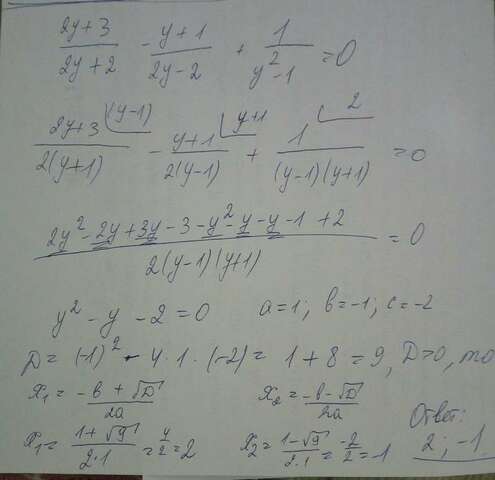 (2y+3)/(2y+2) - (y+1)/(2y-2) + 1/(y²-1) = 0
(2y+3)/(2(y+1)) (y-1) - (y+1)/(2(y-1)) y+1 + 1/((y-1)(y+1)) 2 = 0
(2y² - 2y + 3y - 3 - y² - y - y - 1 + 2)/(2(y-1)(y+1)) = 0
y² - y - 2 = 0 a=1; b=-1; c=-2
Д = (-1)² - 4·1·(-2) = 1+8 = 9, Д>0, то
x₁ = (-b + √Д)/2a x₂ = (-b - √Д)/2a
x₁ = (1+√9)/(2·1) = 4/2 = 2 x₂ = (1-√9)/(2·1) = -2/2 = -1
Ответ:
2; -1